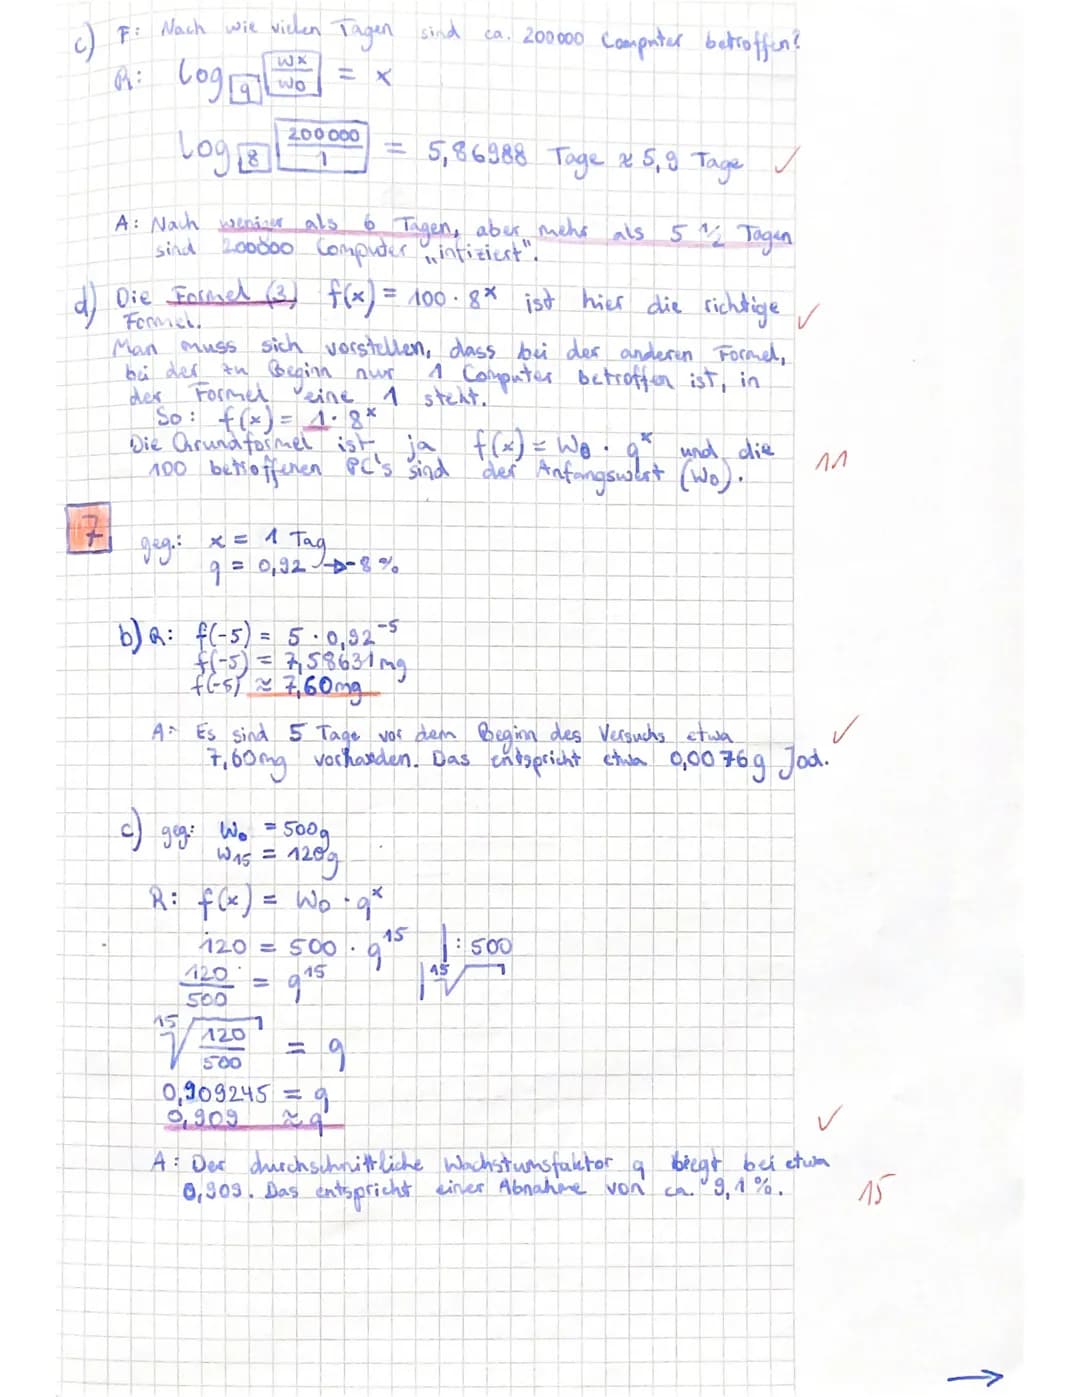 c) F: Nach wie vielen Tagen sind ca. 200000 Computer betroffen?
R: log q Wx/W0 = x
log 8 200000/1 = 5,86988 Tage ≈ 5,9 Tage ✓
A: Nach weniger als 6 Tagen, aber mehr als 5 1/2 Tagen
sind 200000 Computer „infiziert".
d) Die Formel (3) f(x) = 100 · 8^x ist hier die richtige ✓
Formel.
Man muss sich vorstellen, dass bei der anderen Formel,
bei der zu Beginn nur 1 Computer betroffen ist, in
der Formel eine 1 steht.
So: f(x) = 1 · 8^x
Die Grundformel ist ja f(x) = W0 · q^x und die
100 betroffenen PC's sind der Anfangswert (W0). 11
7 geg.: x = 1 Tag
q = 0,92 → -8%
b) R: f(-5) = 5 · 0,92^-5
f(-5) = 7,58631 mg
f(-5) ≈ 7,60mg
A: Es sind 5 Tage vor dem Beginn des Versuchs etwa ✓
7,60mg vorhanden. Das entspricht etwa 0,0076g Jod.
c) geg: W0 = 500g
W15 = 120g
R: f(x) = W0 · q^x
120 = 500 · q^15 | : 500
120/500 = q^15 | 15√
15√120/500 = q
0,909245 = q
0,909 ≈ q ✓
A: Der durchschnittliche Wachstumsfaktor q liegt bei etwa
0,909. Das entspricht einer Abnahme von ca. 9,1%. 15
→